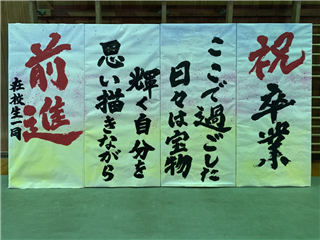 祝卒業
ここで過ごした
日々は宝物
輝く自分を
思い描きながら
前進
在校生一同